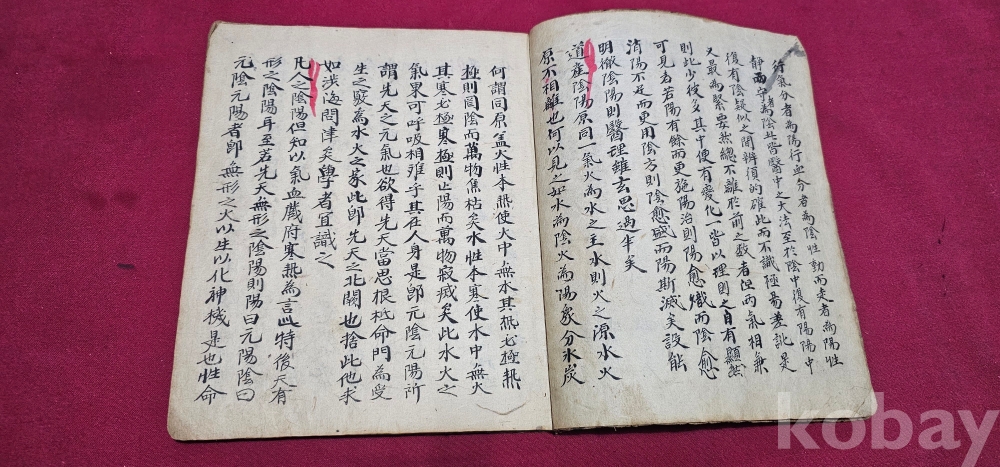 行氣分者為陽行血分者為陰性動而走者為陽性
靜而守者為陰此皆醫中之大法至於陰中復有陽陽中
後有陰疑似之間辨須的確此而不識極易差訛是
又最為緊要然總不離於前之数者但兩氣相兼
則此少彼多其中便有變化一皆以理測之自有顯然
可見者若陽有餘而更施陽治則陽愈熾而陰愈
消陽不足而更用陰方則陰愈盛而陽斯滅矣設能
明徹陰陽則醫理雖玄思過半矣
道産陰陽原同一氣火為水之主水則火之源水火
原不相離也何以見之如水為陰火為陽象分氷炭
何謂同原盖火性本熱使火中無水其熱必極熱
極則閆陰而萬物焦枯矣水性本寒使水中無火
其寒必極寒極則亾陽而萬物寂滅矣此水火之
氣果可呼吸相難乎其在人身是卽元陰元陽所
謂先天之元氣也欲得先天當思根柢命門為受
生之竅為水火之家此卽先天之北闕也捨此他求
如涉海問津矣學者宜識之
凡人之陰陽但知以氣血臓府寒熱為言此特後天有
形之陰陽耳至若先天無形之陰陽則陽曰元陽陰曰
元陰元陽者卽無形之火以生以化神機是也性命
kobay